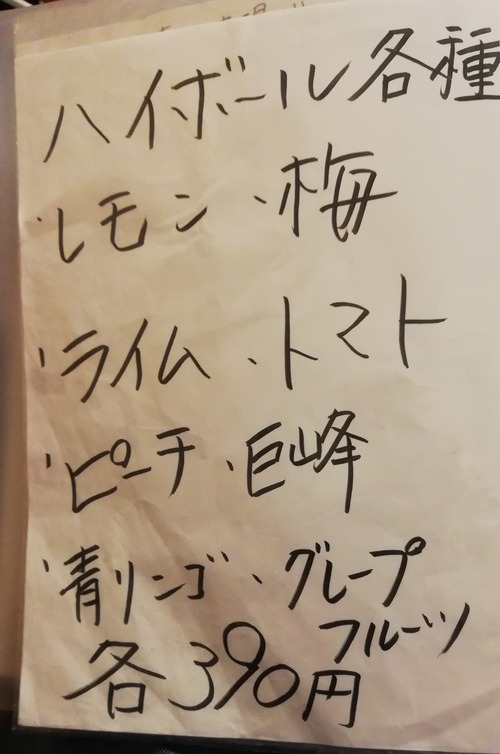 ハイボール各種
・レモン・梅
・ライム・トマト
・ピーチ・巨峰
・青リンゴ・グレープ
フルーツ
各390円